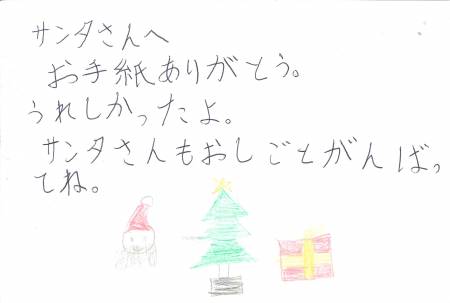 サンタさんへ
お手紙ありがとう。
うれしかったよ。
サンタさんもおしごとがんばっ
てね。